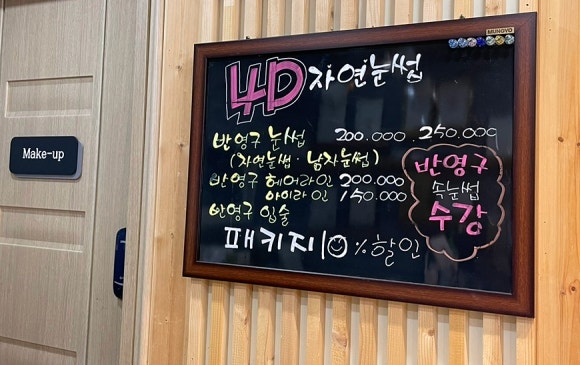 Make-up
MUNGYO
4D 자연눈썹
반영구 눈썹 200.000 250.000
(자연눈썹·남자눈썹)
반영구 헤어라인 200.000
아이라인 150.000
반영구 입술
패키지 10%할인
반영구
속눈썹
수강